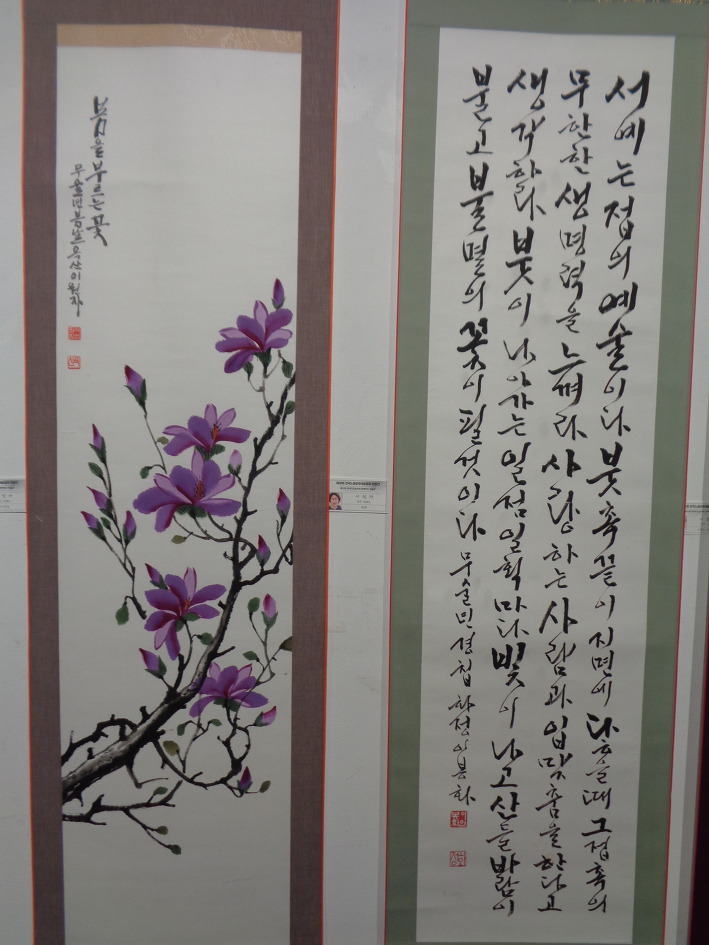 봄을 부르는 꽃
무술년 봄날 옥산 이원자
서예는 접의 예술이다 붓촉 끝이 지면에 다흘때 그접촉의
무한한 생명력을 느껴라 사랑하는 사람과 입맞춤을 한다고
생각하라 붓이 나아가는 일점일획 마다 빛이 나고 산들바람이
불고 불멸의 꽃이 필것이다 무술년 경칩